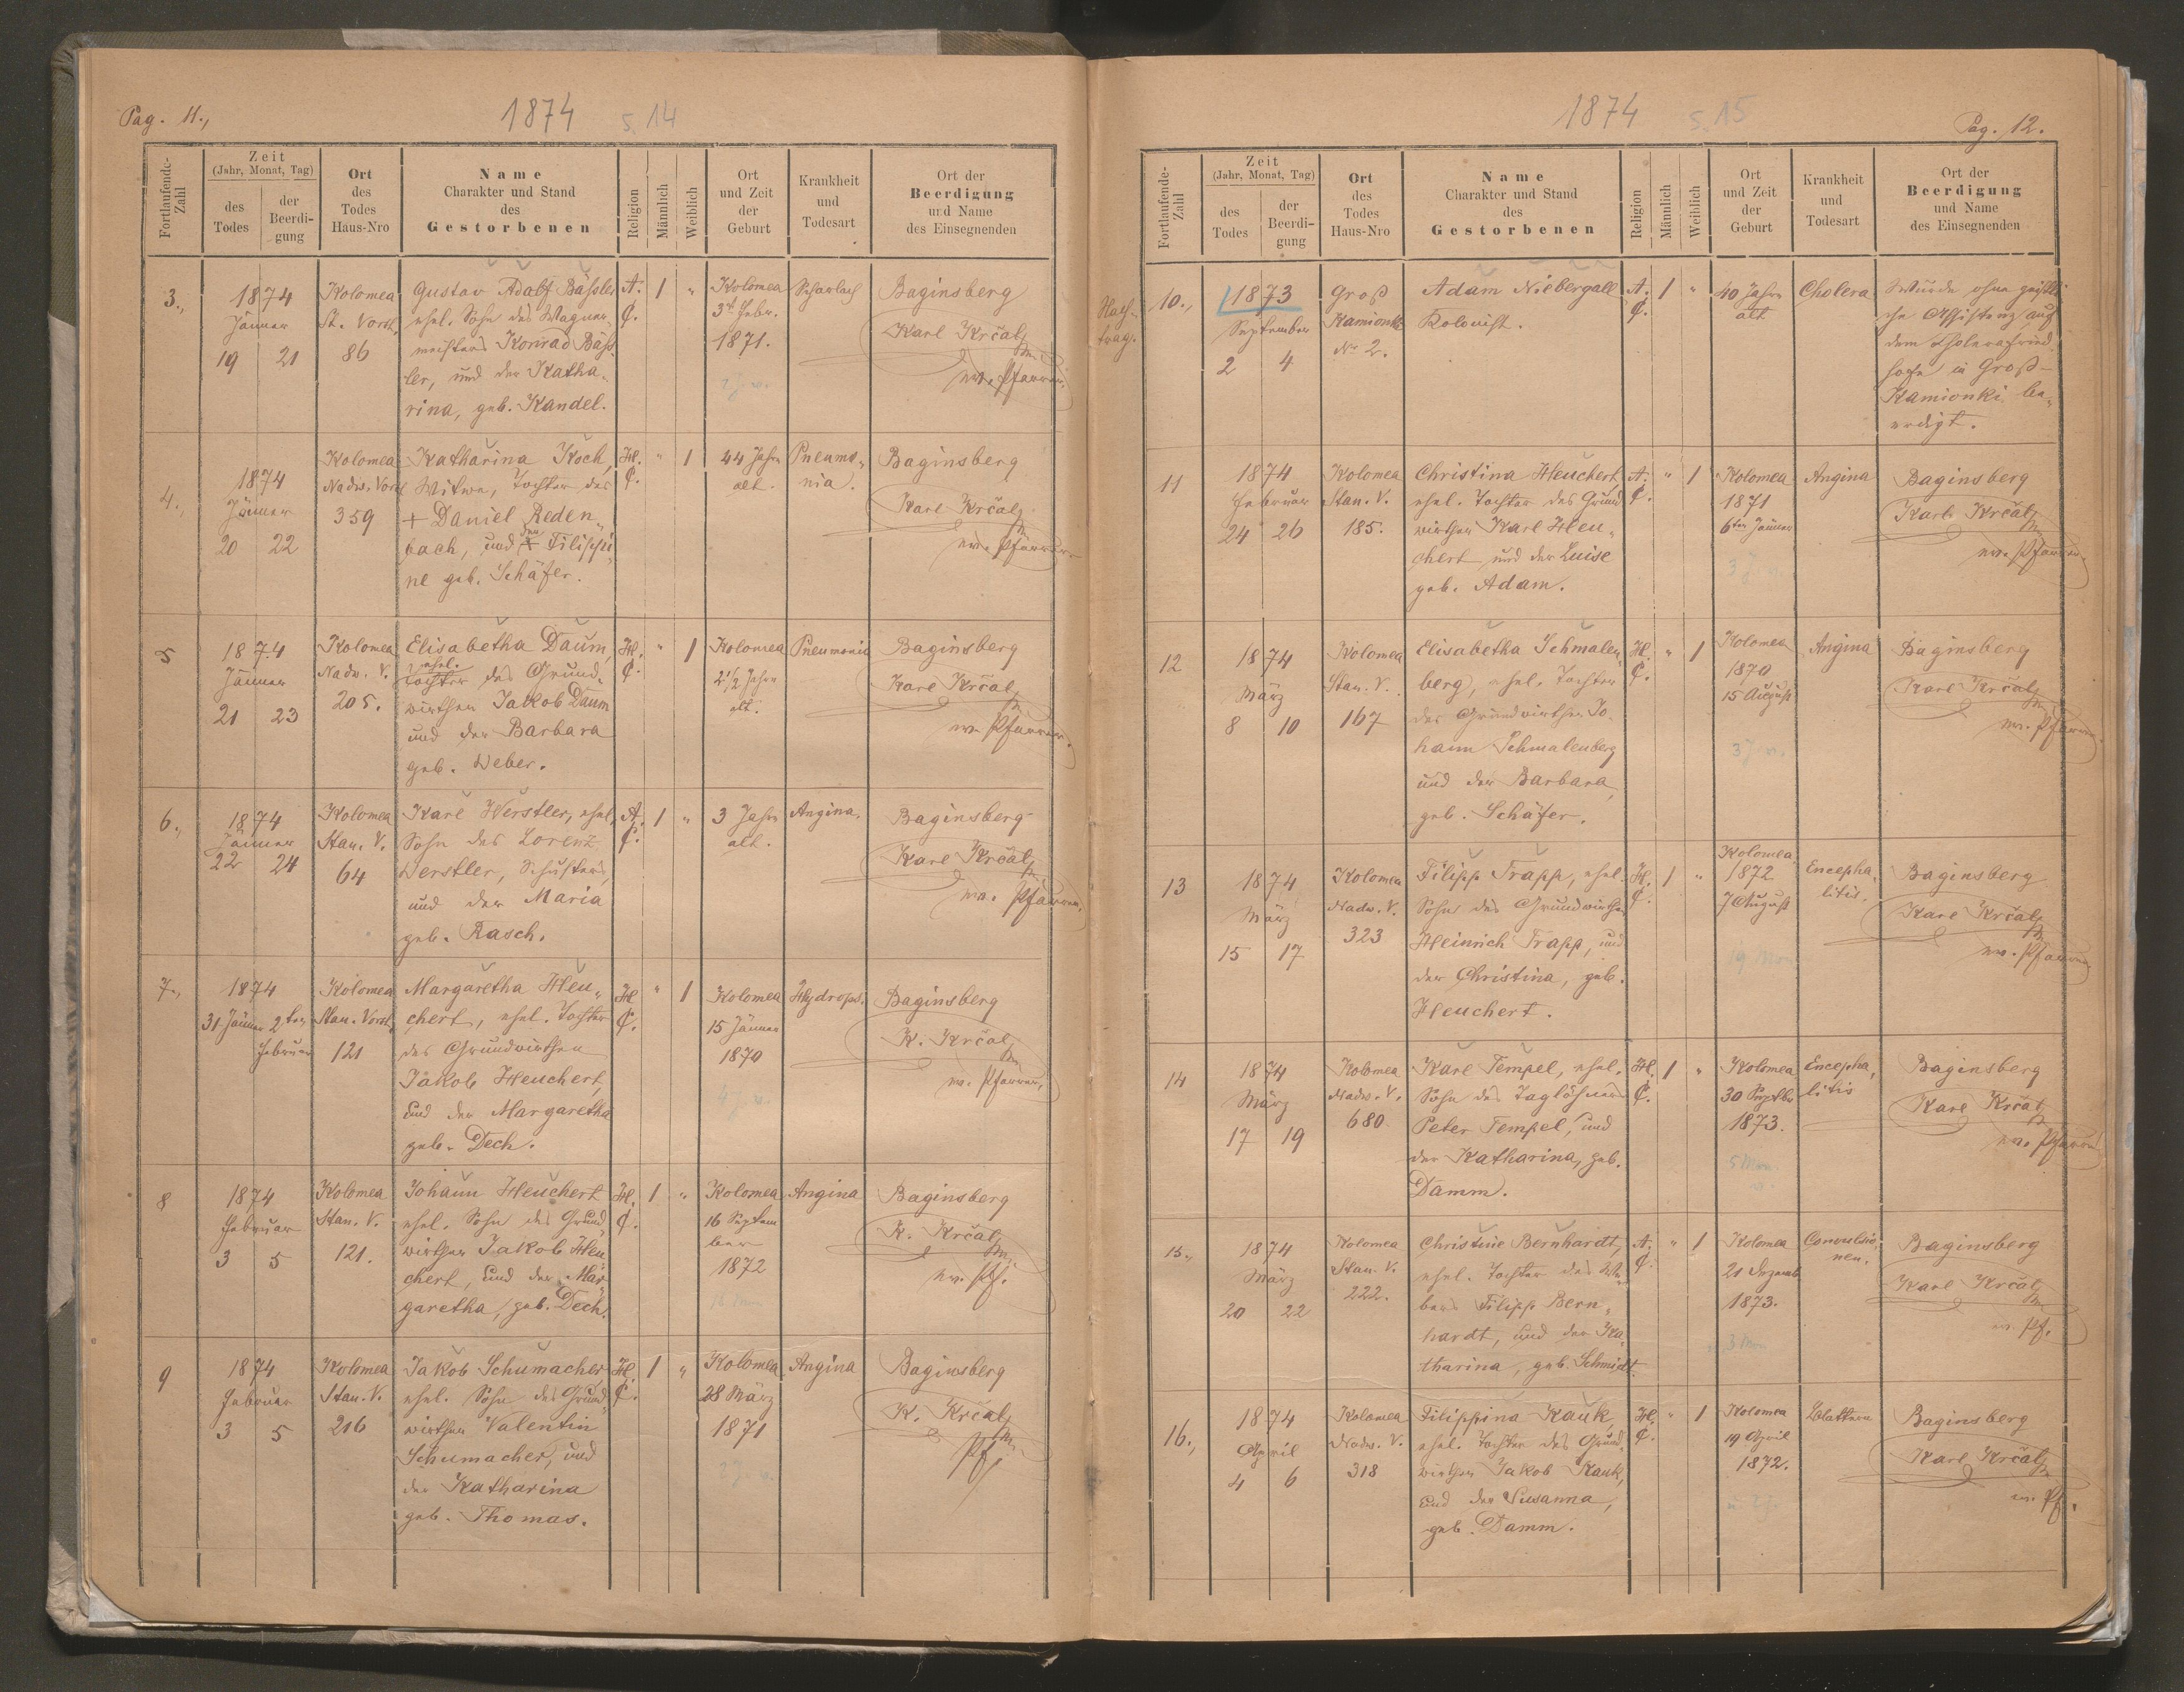 Pag. 11.,
1874
S. 14
Fortlaufende-Zahl
Zeit
(Jahr, Monat, Tag)
des Todes
der Beerdi-gung
Ort
des
Todes
Haus-Nro
Name
Charakter und Stand
des
Gestorbenen
Religion
Männlich
Weiblich
Ort
und Zeit
der
Geburt
Krankheit
und
Todesart
Ort der
Beerdigung
und Name
des Einsegnenden
3., 1874 Kolomea Gustav Adolf Bässler A. 1 " Kolomea Scharlach Baginsberg
Jänner St. Vorst. ehel. Sohn des Wagner- C. 3t Febr. Karl Krčal
19 21 86 meisters Konrad Bäss- 1871. ev. Pfarrer.
ler, und der Katha-
rina, geb. Kandel.
4., 1874 Kolomea Katharina Koch, H. " 1 44 Jahre Pneumo- Baginsberg
Jänner Nadw. Vorst. Witwe, Tochter des C. alt. nia. Karl Krčal
20 22 359 + Daniel Reden- ev. Pfarrer
bach, und der + Filippi-
ne geb. Schäfer.
5 1874 Kolomea Elisabetha Daum, H. " 1 Kolomea Pneumonia Baginsberg
Jänner Nadw. V. ehel. Tochter des Grund- C. 2 1/2 Jahre Karl Krčal
21 23 205. wirthen Jakob Daum alt. ev. Pfarrer.
und der Barbara
geb. Weber.
6., 1874 Kolomea Karl Werstler, ehel. A. 1 " 3 Jahre Angina. Baginsberg
Jänner Stan. V. Sohn des Lorenz C. alt. Karl Krčal
22 24 64 Werstler, Schusters, ev. Pfarrer.
und der Maria
geb. Rasch.
7., 1874 Kolomea Margaretha Heu- H. " 1 Kolomea Hydrops. Baginsberg
31 Jänner 2ten Februar Stan. Vorst. chert, ehel. Tochter C. 15 Jänner K. Krčal
121 des Grundwirthen 1870 ev. Pfarrer.
Jakob Heuchert,
und der Margaretha
geb. Dech.
8 1874 Kolomea Johann Heuchert H. 1 " Kolomea Angina Baginsberg
Februar Stan. V. ehel. Sohn des Grund- C. 16 Septem- K. Krčal
3 5 121. wirthen Jakob Heu- ber ev. Pf.
chert, und der Mar- 1872
garetha, geb. Dech.
9 1874 Kolomea Jakob Schumacher H. 1 " Kolomea Angina Baginsberg
Februar Stan. V. ehel. Sohn des Grund- C. 28 März K. Krčal
3 5 216 wirthen Valentin 1871 Pf.
Schumacher, und
der Katharina
geb. Thomas.
1874
S. 15
Pag. 12.
Fortlaufende-Zahl
Zeit
(Jahr, Monat, Tag)
des Todes
der Beerdi-gung
Ort
des
Todes
Haus-Nro
Name
Charakter und Stand
des
Gestorbenen
Religion
Männlich
Weiblich
Ort
und Zeit
der
Geburt
Krankheit
und
Todesart
Ort der
Beerdigung
und Name
des Einsegnenden
Nach-trag. 10., 1873 Groß Adam Niebergall A. 1 " 40 Jahre Cholera Wurde ohne geistli-
September Kamionki Kolonist. C. alt che Assistenz auf
2 4 No 2. dem Cholerafried-
hofe in Groß-
Kamionki be-
erdigt.
11 1874 Kolomea Christina Heuchert A. " 1 Kolomea Angina Baginsberg
Februar Stan. V. ehel. Tochter des Grund- C. 1871 Karl Krčal
24 26 185. wirthen Karl Heu- 6ten Jänner ev. Pfarrer.
chert und der Luise
geb. Adam.
12 1874 Kolomea Elisabetha Schmalen- H. " 1 Kolomea Angina Baginsberg
März Stan. V. berg, ehel. Tochter C. 1870 Karl Krčal
8 10 167 des Grundwirthen Jo- 15 August ev. Pfarrer.
hann Schmalenberg
und der Barbara,
geb. Schäfer.
13 1874 Kolomea Filipp Trapp, ehel. H. 1 " Kolomea Encepha- Baginsberg
März Nadw. V. Sohn des Grundwirthen C. 1872 litis. Karl Krčal
15 17 323 Heinrich Trapp, und 7 August ev. Pfarrer
der Christina, geb. 19 Mon
Heuchert.
14 1874 Kolomea Karl Tempel, ehel. H. 1 " Kolomea Encepha- Baginsberg
März Nadw. V. Sohn des Taglöhners C. 30 Septbr litis Karl Krčal
17 19 680 Peter Tempel, und 1873. ev. Pfarrer
der Katharina, geb. 5 Mon.
Damm.
15., 1874 Kolomea Christine Bernhardt, A. " 1 Kolomea Convulsio- Baginsberg
März Stan. V. ehel. Tochter des We- C. 21 Dezemb. nen. Karl Krčal
20 22 222. bers Filipp Bern- 1873. ev. Pf.
hardt, und der Ka- 3 Mon
tharina, geb. Schmidt.
16., 1874 Kolomea Filippina Kauk, H. " 1 Kolomea Blattern Baginsberg
April Nadw. V. ehel. Tochter des Grund- C. 19 April Karl Krčal
4 6 318 wirthen Jakob Kauk, 1872. ev. Pf.
und der Susanna,
geb. Damm.